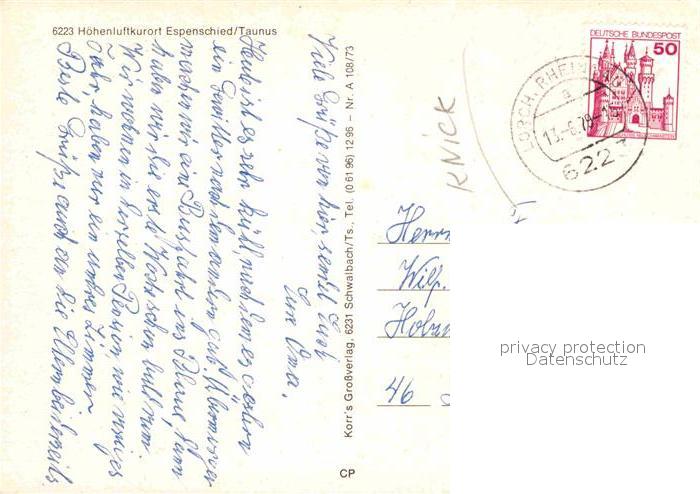 6223 Höhenluftkurort Espenschied/Taunus
Viele Grüße von hier, sendet Euch
Eure Oma.
Heute ist es sehr kühl, nachdem es gestern
ein Gewitter nach dem andern gab. Übermorgen
machen wir eine Busfahrt ins Blaue, dann
haben wir die erste Woche schon bald rum
Wir wohnen in derselben Pension, wie voriges
Jahr haben nur ein anderes Zimmer
Beste Grüße auch an die Eltern beiderseits
Korr's Großverlag, 6231 Schwalbach/Ts., Tel. (0 61 96) 12 96 – Nr. A 108/73
CP
KNICK
DEUTSCHE BUNDESPOST
50
LORCH, RHEIN
a
13.-6.79
6223
Herrn
Wilh.
46
privacy protection
Datenschutz